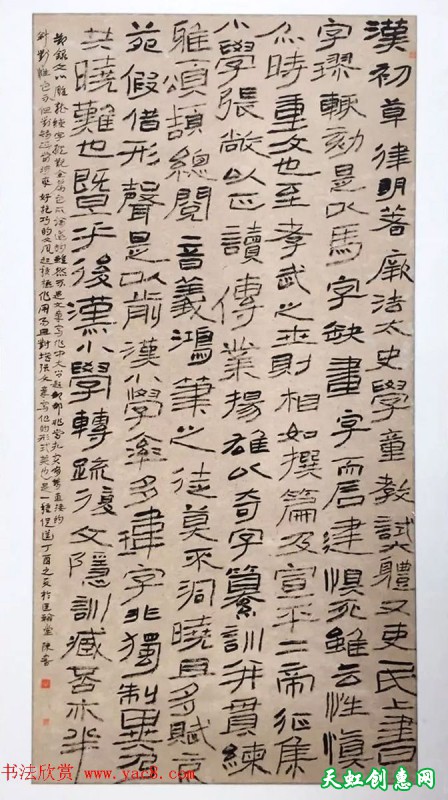 漢初草律明著厥法太史學童教試六體又吏民上書
字謬輒劾是以馬字缺畫字而石建惧死雖云性慎
亦時重文也至孝武之世則相如撰篇及宣平二帝征集
小學張敞以正讀傳業揚雄以奇字纂訓并貫練
雅頌頡總閱音義鴻筆之徒莫不洞曉且多賦京
苑假借形聲是以前漢小學率多瑋字非獨制異乃
共曉難也暨乎後漢小學轉疏復文隱訓臧否亦半
節錄文心雕龍練字
是一種促進丁酉之夏於
书法欣赏 www.yac8.com
天虹创意网